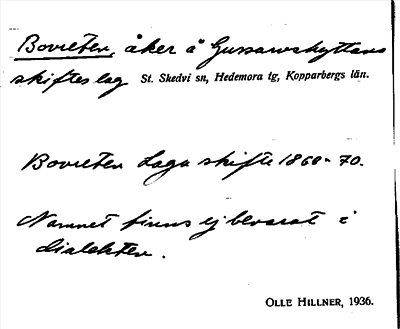 Bovreten, åker å Gussarvshyttans
skifteslag St. Skedvi sn, Hedemora tg, Kopparbergs län.
Bovreten Laga skifte 1868-70.
Namnet finns ej bevarat i
dialekten.
OLLE HILLNER, 1936.